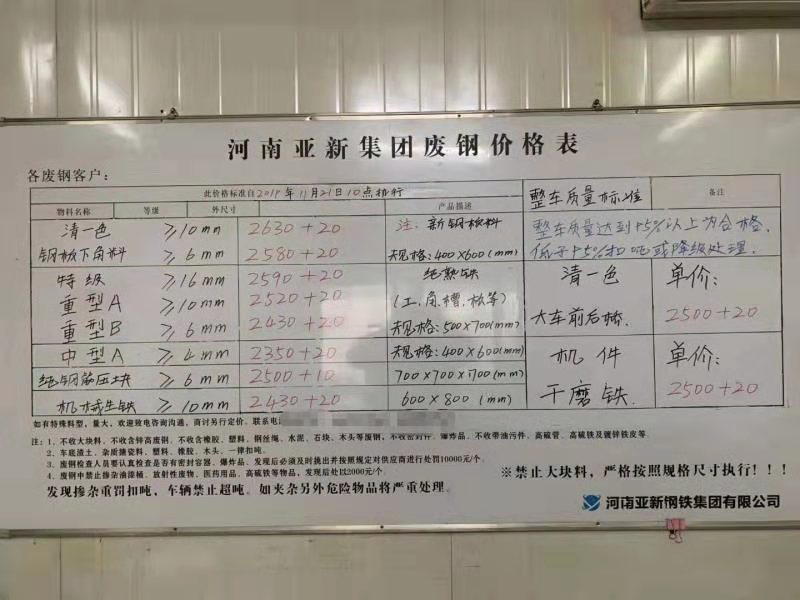 河南亚新集团废钢价格表
各废钢客户:
此价格标准自2019年11月21日10点执行
整车质量标准
备注
物料名称 等级 外尺寸 产品描述
清一色 ≥10mm 2630+20 注:新钢板料
整车质量达到95%以上为合格,
钢板下角料 ≥6mm 2580+20 规格:400×600(mm)
低于95%扣吨或降级处理.
特级 ≥16mm 2590+20 纯熟铁
清一色 单价:
重型A ≥10mm 2520+20 (工.角槽.板等)
重型B ≥6mm 2430+20 规格:500×700(mm)
大车前后桥. 2500+20
中型A ≥4mm 2350+20 规格:400×600(mm)
机件 单价:
纯钢筋压块 ≥6mm 2500+10 700×700×700(mm)
干磨铁. 2500+20
机械生铁 ≥10mm 2430+20 600×800(mm)
如有特殊料型,量大,欢迎致电咨询沟通,商讨另行定价。联系电
注:1、不收大块料,不收含锌高废钢,不收含橡胶、塑料、钢丝绳、水泥、石块、木头等废钢,不收密封件、爆炸品、不收带油污件、高硫管、高硫铁及镀锌铁皮等。
2、车底渣土、杂质搪瓷料、塑料、橡胶、木头、一律扣吨。
3、废钢检查人员要认真检查是否有密封容器、爆炸品、发现后必须及时挑出并按照规定对供应商进行处罚10000元/个。
4、废钢中禁止掺杂油漆桶、放射性废物、医药用品、高硫铁等物品,发现后处以2000元/个。
※禁止大块料,严格按照规格尺寸执行!!!
发现掺杂重罚扣吨,车辆禁止超吨。如夹杂另外危险物品将严重处理。
河南亚新钢铁集团有限公司